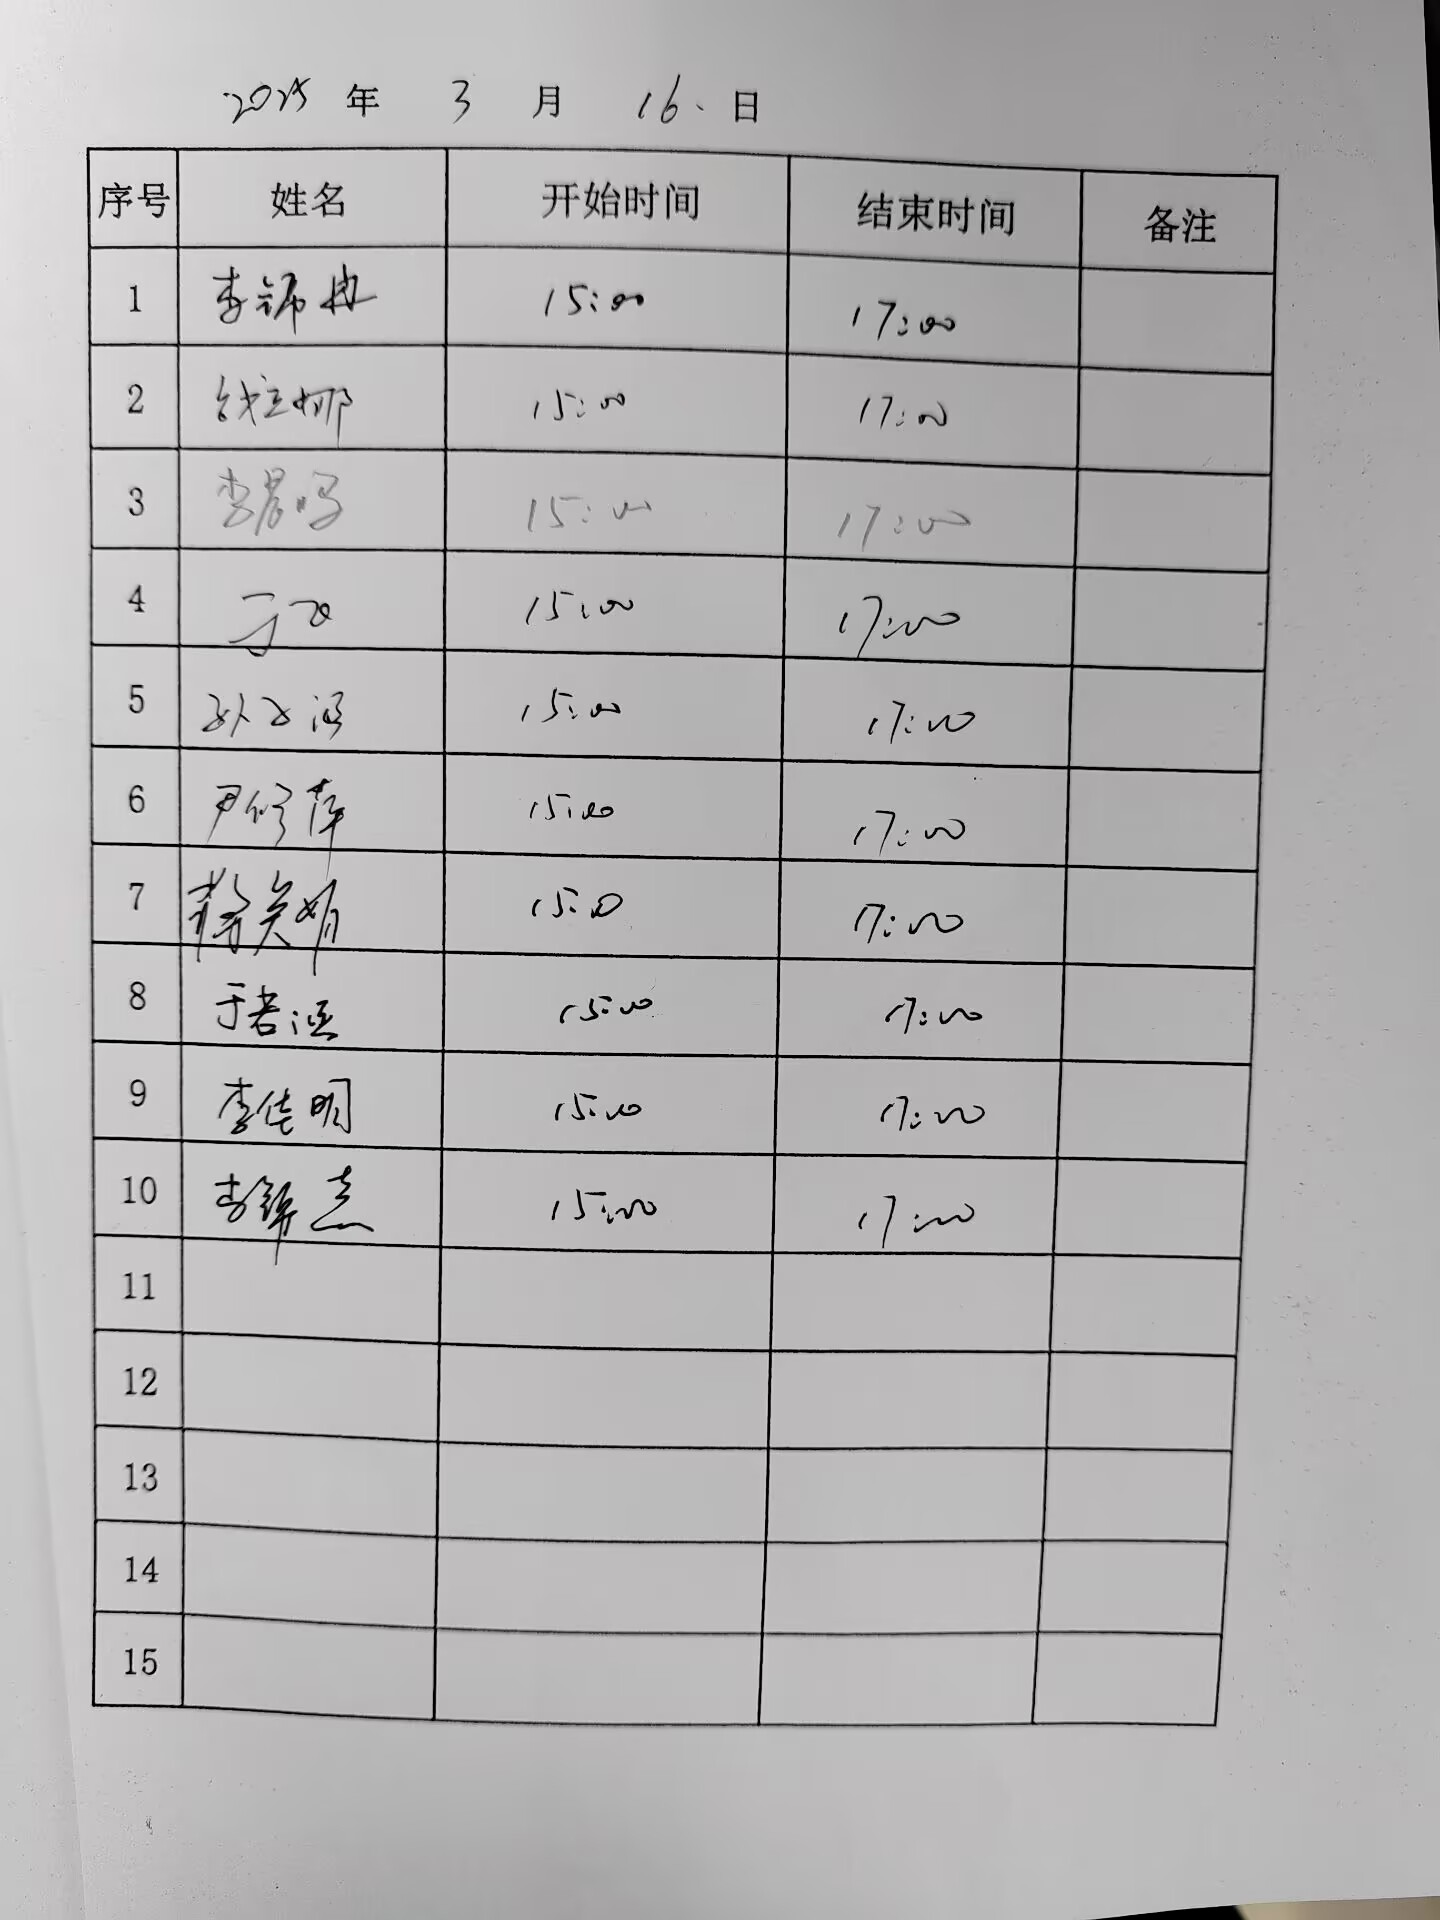 2025 年 3 月 16 日
序号 姓名 开始时间 结束时间 备注
1 李锦冉 15:00 17:00
2 钱立娜 15:00 17:00
3 李晨鸣 15:00 17:00
4 于 15:00 17:00
5 孙文涵 15:00 17:00
6 尹修萍 15:00 17:00
7 蒋美娟 15:00 17:00
8 于若涵 15:00 17:00
9 李佳明 15:00 17:00
10 李锦 15:00 17:00
11
12
13
14
15